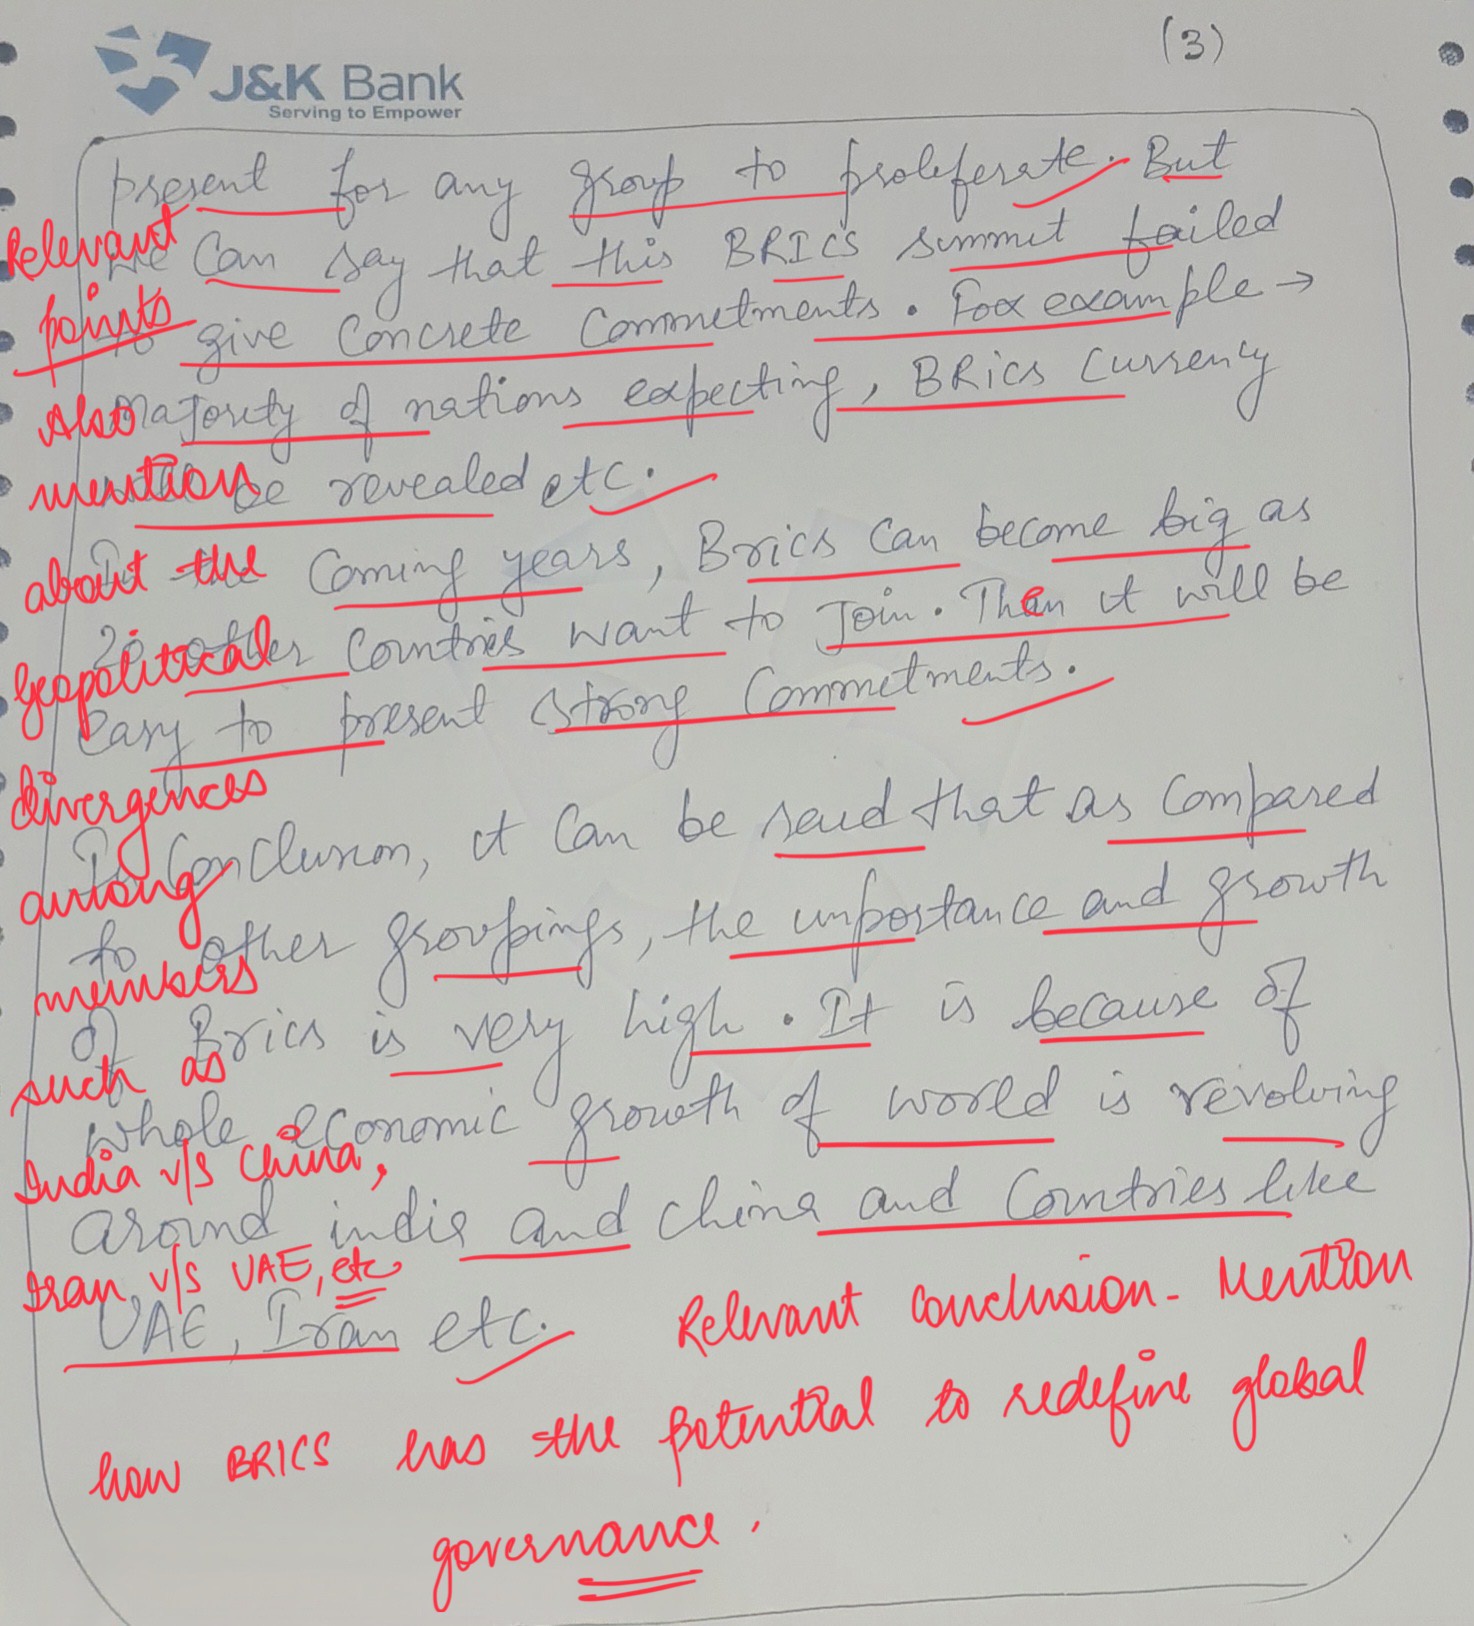 (3)
J&K Bank
Serving to Empower
present for any group to proleferate. But
we Can say that this BRICS summit failed
to give Concrete Commetments. For example →
Majority of nations expecting, BRICS Currency
be revealed etc.
In the Coming years, Brics Can become big as
20 other Countries want to Join. Then it will be
easy to present strong Commetments.
In Conclusion, it Can be said that as Compared
to other groupings, the importance and growth
of Brics is very high. It is because of
whole economic growth of world is revolving
around india and china and Countries like
UAE, Iran etc.
Relevant
points
Also
mention
about the
geopolitical
divergences
among
members
such as
India v/s China,
Iran v/s UAE, etc
Relevant conclusion- Mention
how BRICS has the potential to redefine global
governance.